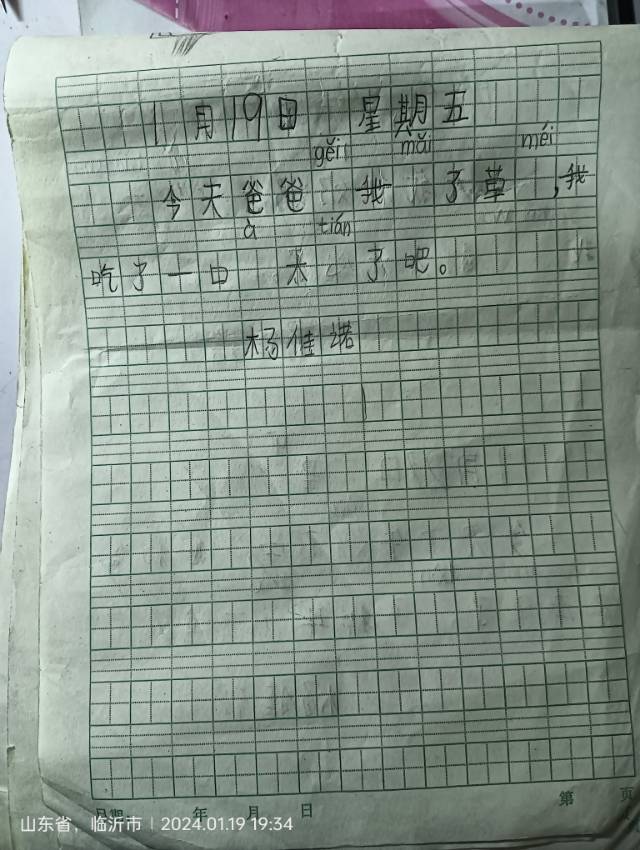 1月19日 星期五
gěi mǎi méi
今天爸爸 我 了草 ，我
à tián
吃了一口 太 了吧。
杨佳诺
日期 年 月 日 第 页
山东省，临沂市 | 2024.01.19 19:34